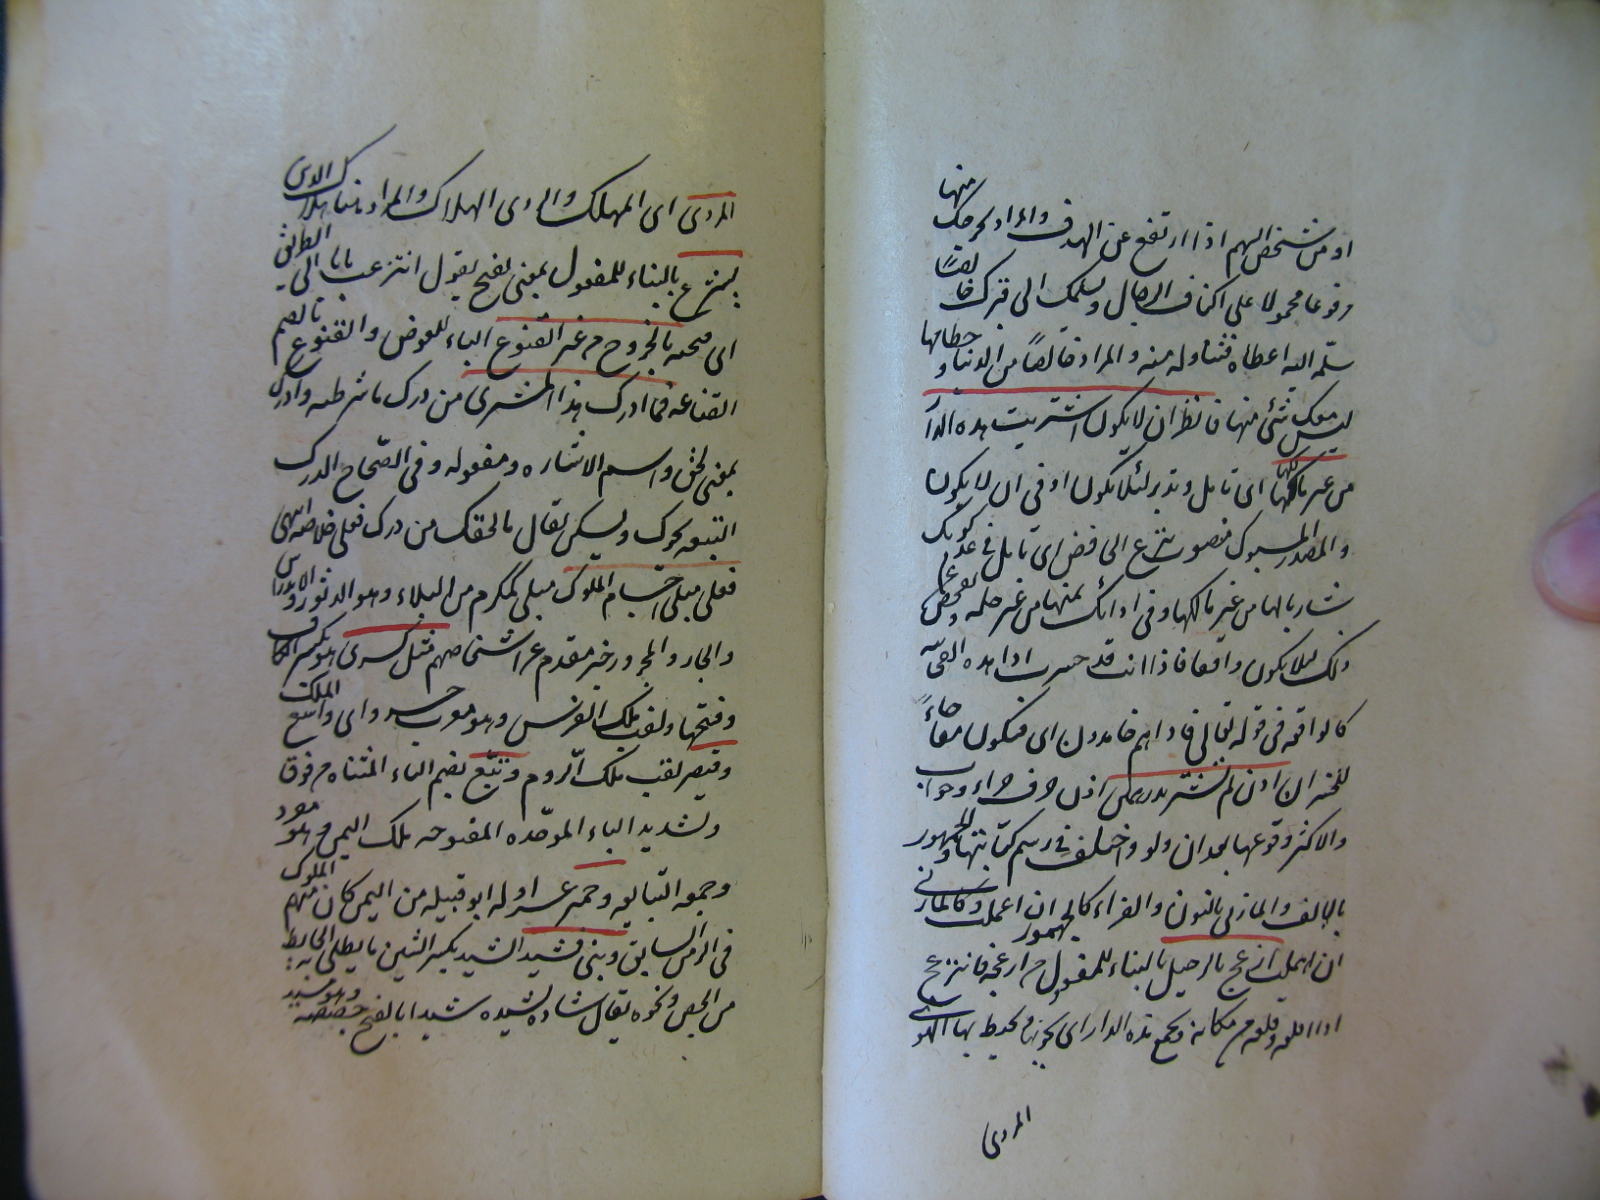 منها
او من شخص السهم اذا ارتفع عن الهدف والمراد يخرجك
مرفوعا محمولا على اكتاف الرجال ويسلمك الى قبرك خالصًا
سلّمه اليه اعطاه فتناوله منه والمراد خالصًا من الدنيا و حطامها
ليس معك شئ منها فانظر ان لا يكون اشتريت هذه الدار
من غير مالكها اى تامل وتدبر لئلا يكون او فى ان لا يكون
والمصدر المسبوك منصوب بنزع الخافض اى تامل فى عدم كونك
شار بالها من غير مالكها وفى ادائك ثمنها من غير حله وتفحص عن
ذلك ليلا يكون واقعا فاذا انت قد خسرت اذا هذه الفجائية
كالواقعة فى قوله تعالى فاذا هم خامدون اى فتكون مفاجاءً
للخسران اذن لم تشتر بدرهمين اذن حرف جزاء وجواب
والاكثر وقوعها بعد ان ولو واختلف فى رسم كتابتها والجمهور
بالالف والمازنى بالنون والفراء كالجمهور ان اعملت وكالمازنى
ان اهملت ازعج بالرحيل بالبناء للمفعول من ازعجه فانزعج
اذا اقلعه وقلعه من مكانه ويجمع هذه الدار اى يحوزها ويحيط بها الهوى
المردى
المردى اى المهلك والردى الهلاك والمراد هنا هلاك الدين
يشرع بالبناء للمفعول بمعنى يفتح يقول اشرعت بابا الى الطريق
اى فتحته بالخروج من عز القنوع الباء للعوض والقنوع بالضم
القناعة فما ادرك هذا المشترى من درك ما شرطيه وادرك
بمعنى لحق واسم الاشارة ومفعوله وفى الصّحاح الدرك
التبعه يحرك ويسكن يقال ما لحقك من درك فعلى خلاصه انتهى
فعلى مبلى اجسام الملوك مبلى كمكرم من البلاء وهو الدثور والاندراس
والجار والمجرور خبر مقدم عن اشخاصهم مثل كسرى هو بكسر الكاف
وفتحها ولقب ملك الفرس وهو معرب خسرو اى واسع الملك
وقيصر لقب ملك الروم وتبّع بضم التاء المثناة من فوق
وتشديد الباء الموحّده المفتوحه ملك اليمن وهو مفرد
وجمعه التبابعه وحمير اوله ابو قبيله من اليمن كان منهم الملوك
فى الزمن السابق وبنى فشيد الشيد بكسر الشين ما يطلى به الحايط
من الجص ونحوه يقال شاده يشيده شيدا بالفتح جصصه وهو مشيد